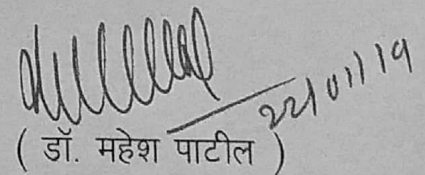 22/01/19
( डॉ. महेश पाटील )